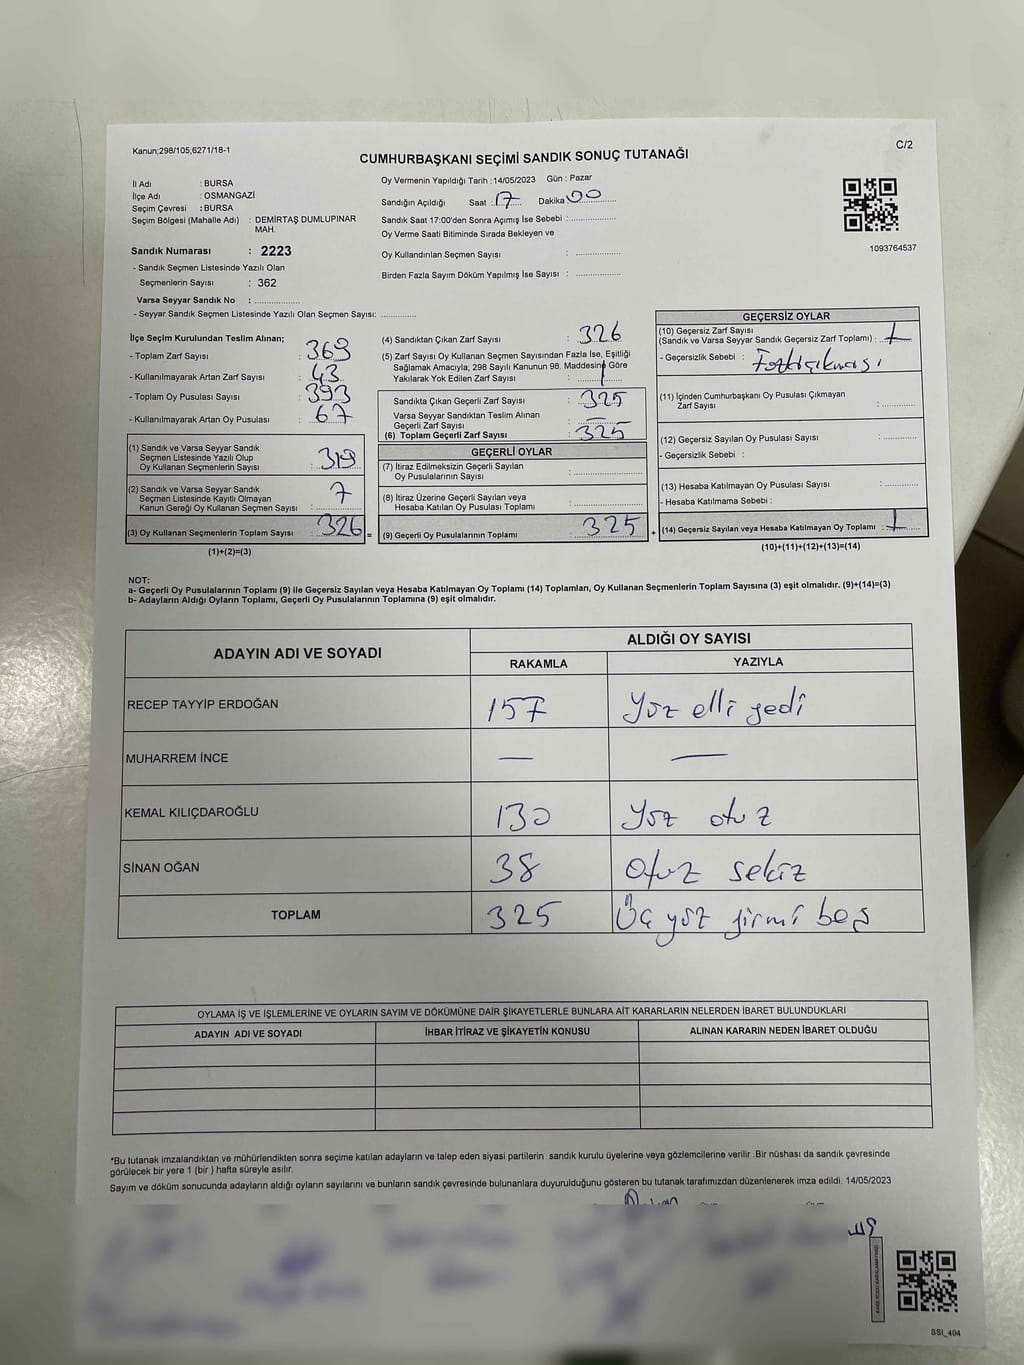 Kanun;298/105,6271/18-1
C/2
CUMHURBAŞKANI SEÇİMİ SANDIK SONUÇ TUTANAĞI
İl Adı : BURSA
İlçe Adı : OSMANGAZİ
Seçim Çevresi : BURSA
Seçim Bölgesi (Mahalle Adı) : DEMİRTAŞ DUMLUPINAR MAH.
Sandık Numarası : 2223
- Sandık Seçmen Listesinde Yazılı Olan
Seçmenlerin Sayısı : 362
Varsa Seyyar Sandık No : ....................
- Seyyar Sandık Seçmen Listesinde Yazılı Olan Seçmen Sayısı: ...............
Oy Vermenin Yapıldığı Tarih :14/05/2023 Gün : Pazar
Sandığın Açıldığı Saat : 17 Dakika 00
Sandık Saat 17:00'den Sonra Açımış İse Sebebi : ....................
Oy Verme Saati Bitiminde Sırada Bekleyen ve
Oy Kullandırılan Seçmen Sayısı : ....................
Birden Fazla Sayım Döküm Yapılmış İse Sayısı : ....................
1093764537
İlçe Seçim Kurulundan Teslim Alınan;
- Toplam Zarf Sayısı : 369
- Kullanılmayarak Artan Zarf Sayısı : 43
- Toplam Oy Pusulası Sayısı : 393
- Kullanılmayarak Artan Oy Pusulası : 67
(1) Sandık ve Varsa Seyyar Sandık
Seçmen Listesinde Yazılı Olup
Oy Kullanan Seçmenlerin Sayısı : 319
(2) Sandık ve Varsa Seyyar Sandık
Seçmen Listesinde Kayıtlı Olmayan
Kanun Gereği Oy Kullanan Seçmen Sayısı : 7
(3) Oy Kullanan Seçmenlerin Toplam Sayısı : 326 =
(1)+(2)=(3)
(4) Sandıktan Çıkan Zarf Sayısı : 326
(5) Zarf Sayısı Oy Kullanan Seçmen Sayısından Fazla İse, Eşitliği
Sağlamak Amacıyla; 298 Sayılı Kanunun 98. Maddesine Göre
Yakılarak Yok Edilen Zarf Sayısı :
Sandıkta Çıkan Geçerli Zarf Sayısı : 325
Varsa Seyyar Sandıktan Teslim Alınan
Geçerli Zarf Sayısı :
(6) Toplam Geçerli Zarf Sayısı : 325
GEÇERLİ OYLAR
(7) İtiraz Edilmeksizin Geçerli Sayılan
Oy Pusulalarının Sayısı : ....................
(8) İtiraz Üzerine Geçerli Sayılan veya
Hesaba Katılan Oy Pusulası Toplamı : ....................
(9) Geçerli Oy Pusulalarının Toplamı : 325 +
GEÇERSİZ OYLAR
(10) Geçersiz Zarf Sayısı
(Sandık ve Varsa Seyyar Sandık Geçersiz Zarf Toplamı) : 1
- Geçersizlik Sebebi :
(11) İçinden Cumhurbaşkanı Oy Pusulası Çıkmayan
Zarf Sayısı : ...............
(12) Geçersiz Sayılan Oy Pusulası Sayısı : ...............
- Geçersizlik Sebebi :
(13) Hesaba Katılmayan Oy Pusulası Sayısı : ...............
- Hesaba Katılmama Sebebi :
(14) Geçersiz Sayılan veya Hesaba Katılmayan Oy Toplamı : 1
(10)+(11)+(12)+(13)=(14)
NOT:
a- Geçerli Oy Pusulalarının Toplamı (9) ile Geçersiz Sayılan veya Hesaba Katılmayan Oy Toplamı (14) Toplamları, Oy Kullanan Seçmenlerin Toplam Sayısına (3) eşit olmalıdır. (9)+(14)=(3)
b- Adayların Aldığı Oyların Toplamı, Geçerli Oy Pusulalarının Toplamına (9) eşit olmalıdır.
ADAYIN ADI VE SOYADI ALDIĞI OY SAYISI
RAKAMLA YAZIYLA
RECEP TAYYİP ERDOĞAN 157 Yüz elli yedi
MUHARREM İNCE — —
KEMAL KILIÇDAROĞLU 130 Yüz otuz
SİNAN OĞAN 38 Otuz sekiz
TOPLAM 325 Üç yüz yirmi beş
OYLAMA İŞ VE İŞLEMLERİNE VE OYLARIN SAYIM VE DÖKÜMÜNE DAİR ŞİKAYETLERLE BUNLARA AİT KARARLARIN NELERDEN İBARET BULUNDUKLARI
ADAYIN ADI VE SOYADI İHBAR İTİRAZ VE ŞİKAYETİN KONUSU ALINAN KARARIN NEDEN İBARET OLDUĞU
*Bu tutanak imzalandıktan ve mühürlendikten sonra seçime katılan adayların ve talep eden siyasi partilerin sandık kurulu üyelerine veya gözlemcilerine verilir .Bir nüshası da sandık çevresinde
görülecek bir yere 1 (bir ) hafta süreyle asılır.
Sayım ve döküm sonucunda adayların aldığı oyların sayılarını ve bunların sandık çevresinde bulunanlara duyurulduğunu gösteren bu tutanak tarafımızdan düzenlenerek imza edildi. 14/05/2023
SSI_404